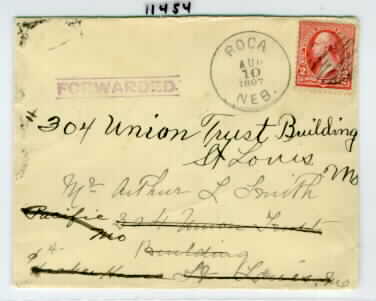 11454
ROCA
AUG
10
1897
NEB.
2 2
FORWARDED.
304 Union Trust Building
St Louis
Mo
Mr Arthur L Smith
Pacific 304 Union Trust
Mo
Building
St Louis, Mo